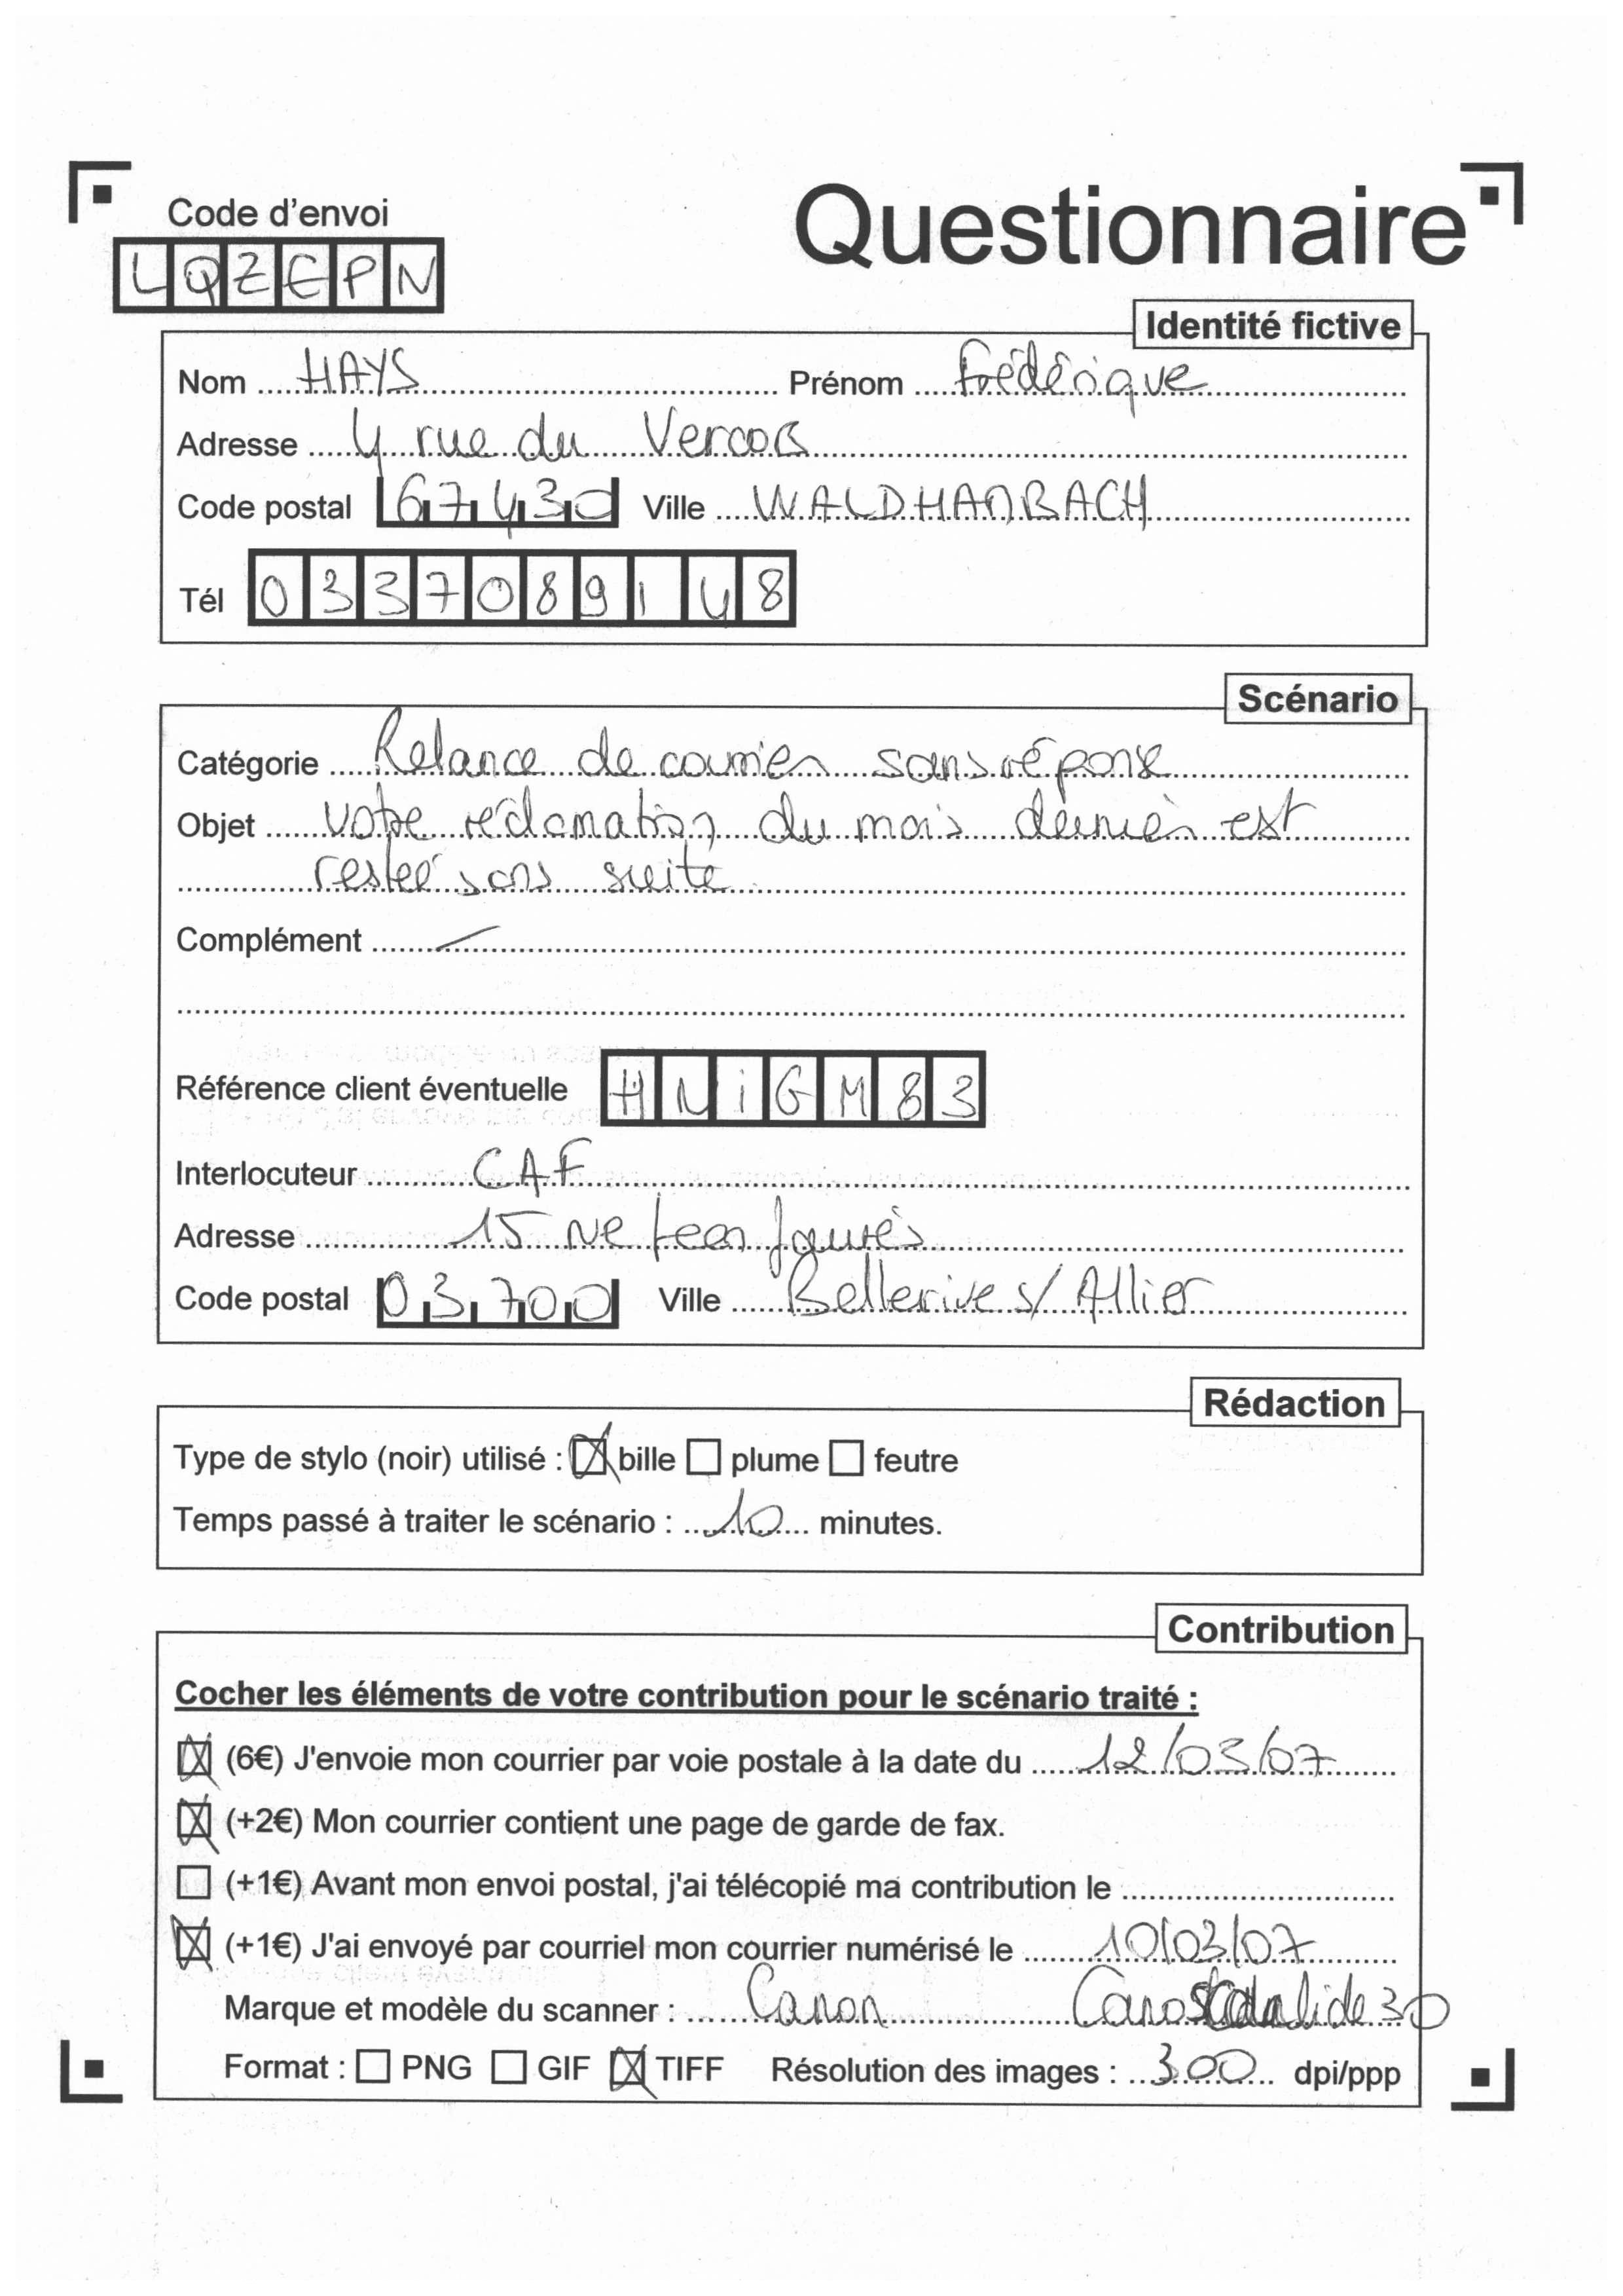 Code d'envoi
LQZEPN
Questionnaire
Identité fictive
Nom HAYS Prénom Frédérique
Adresse 4 rue du Vercors
Code postal 67430 Ville WALDHAMBACH
Tél 0337089148
Scénario
Catégorie Relance de courrier sans réponse
Objet Votre réclamation du mois dernier est
restée sans suite.
Complément /
Référence client éventuelle HNiGM83
Interlocuteur CAF
Adresse 15 rue Jean Jaurès
Code postal 03700 Ville Bellerive s/ Allier
Rédaction
Type de stylo (noir) utilisé : bille plume feutre
Temps passé à traiter le scénario : 10 minutes.
Contribution
Cocher les éléments de votre contribution pour le scénario traité :
(6€) J'envoie mon courrier par voie postale à la date du 12/03/07
(+2€) Mon courrier contient une page de garde de fax.
(+1€) Avant mon envoi postal, j'ai télécopié ma contribution le
(+1€) J'ai envoyé par courriel mon courrier numérisé le 10/03/07
Marque et modèle du scanner : Canon lide 30
Format : PNG GIF TIFF Résolution des images : 300 dpi/ppp